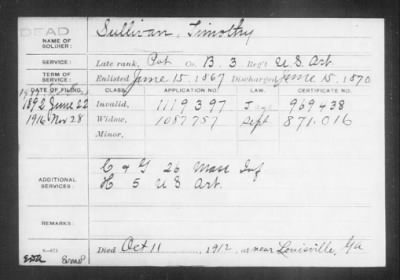 DEAD
NAME OF SOLDIER: Sullivan, Timothy
SERVICE: Late rank, Pvt Co. B. 3 Reg't U.S. Art.
TERM OF SERVICE: Enlisted June 15, 1867 Discharged June 15, 1870
DATE OF FILING. CLASS. APPLICATION NO. LAW. CERTIFICATE NO.
1892 June 22 Invalid, 1119397 969438
1916 Nov 28 Widow, 1087757 Sept 871.016
Minor,
ADDITIONAL SERVICES: C & G 26 Mass Inf
H 5 U S Art.
REMARKS:
Died Oct 11, 1912, at near Louisville, Ga